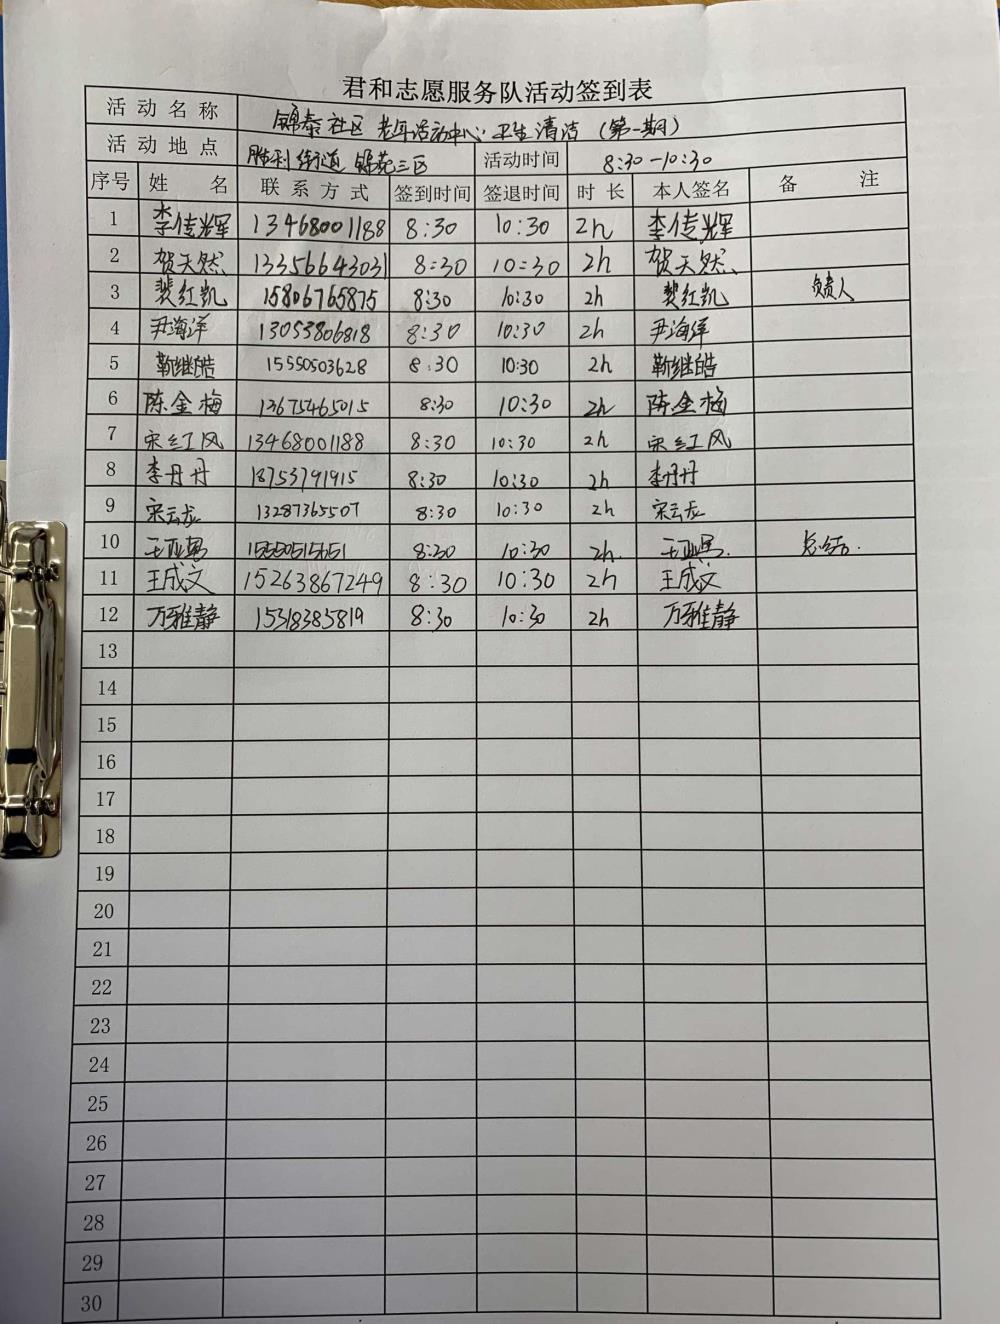 君和志愿服务队活动签到表
活动名称 锦泰社区老年活动中心卫生清洁（第一期）
活动地点 胜利街道锦苑三区 活动时间 8:30-10:30
序号 姓名 联系方式 签到时间 签退时间 时长 本人签名 备注
1 李传辉 13468001188 8:30 10:30 2h 李传辉
2 贺天然 13356643031 8:30 10:30 2h 贺天然
3 裴红凯 15806765875 8:30 10:30 2h 裴红凯 负责人
4 尹海洋 13053806818 8:30 10:30 2h 尹海洋
5 靳继皓 15550503628 8:30 10:30 2h 靳继皓
6 陈金梅 13675465015 8:30 10:30 2h 陈金梅
7 宋红风 13468001188 8:30 10:30 2h 宋红风
8 李丹丹 18753791915 8:30 10:30 2h 李丹丹
9 宋云龙 13287365507 8:30 10:30 2h 宋云龙
10 王亚男 15550515651 8:30 10:30 2h. 王亚男. 总结.
11 王成文 15263867249 8:30 10:30 2h 王成文
12 万雅静 15318385819 8:30 10:30 2h 万雅静
13
14
15
16
17
18
19
20
21
22
23
24
25
26
27
28
29
30